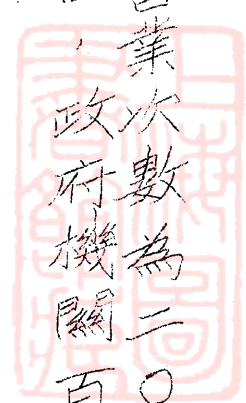 業次數為二〇
政府機關百